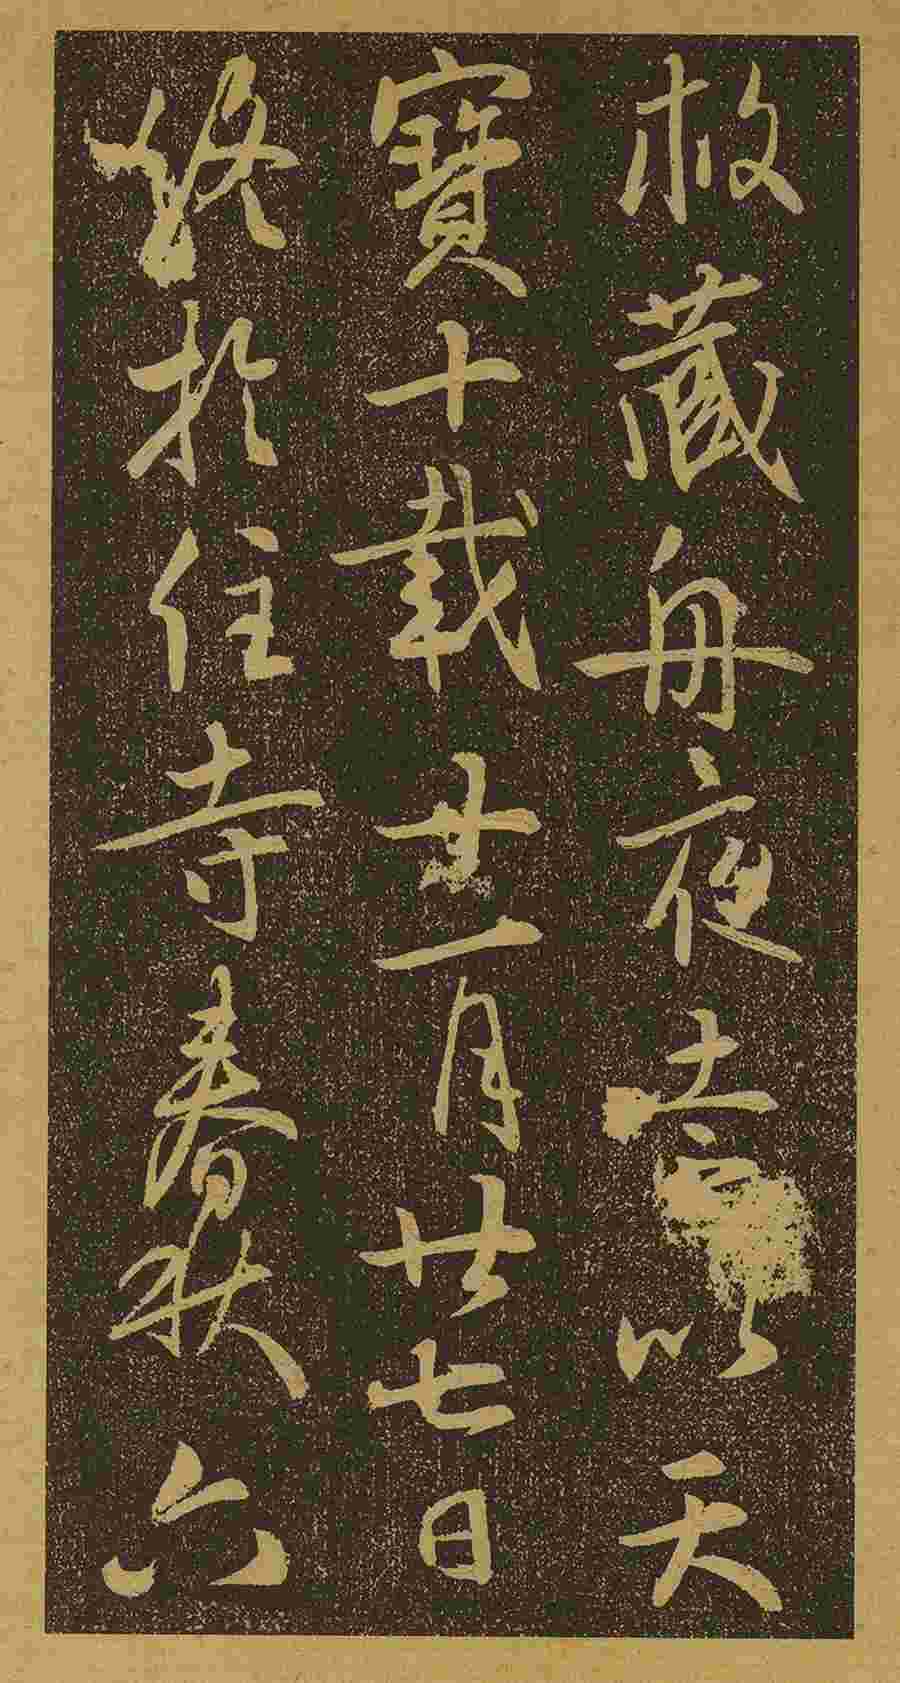 救藏舟夜去以天
寶十載一月廿七日
終於住寺春秋六